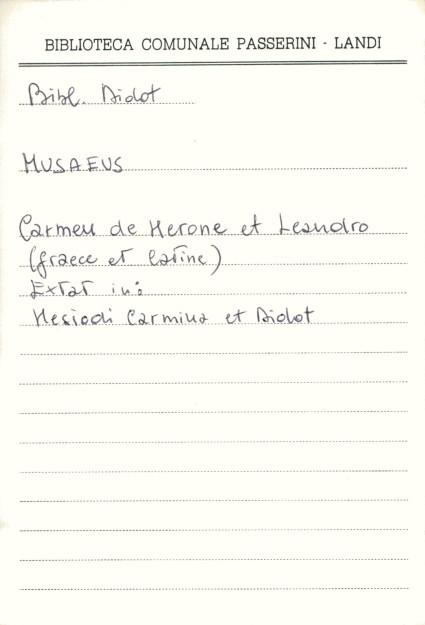 BIBLIOTECA COMUNALE PASSERINI - LANDI
Bibl. Didot
MUSAEUS
Carmen de Herone et Leandro
(graece et latine)
Extat in:
Hesiodi Carmina et Didot